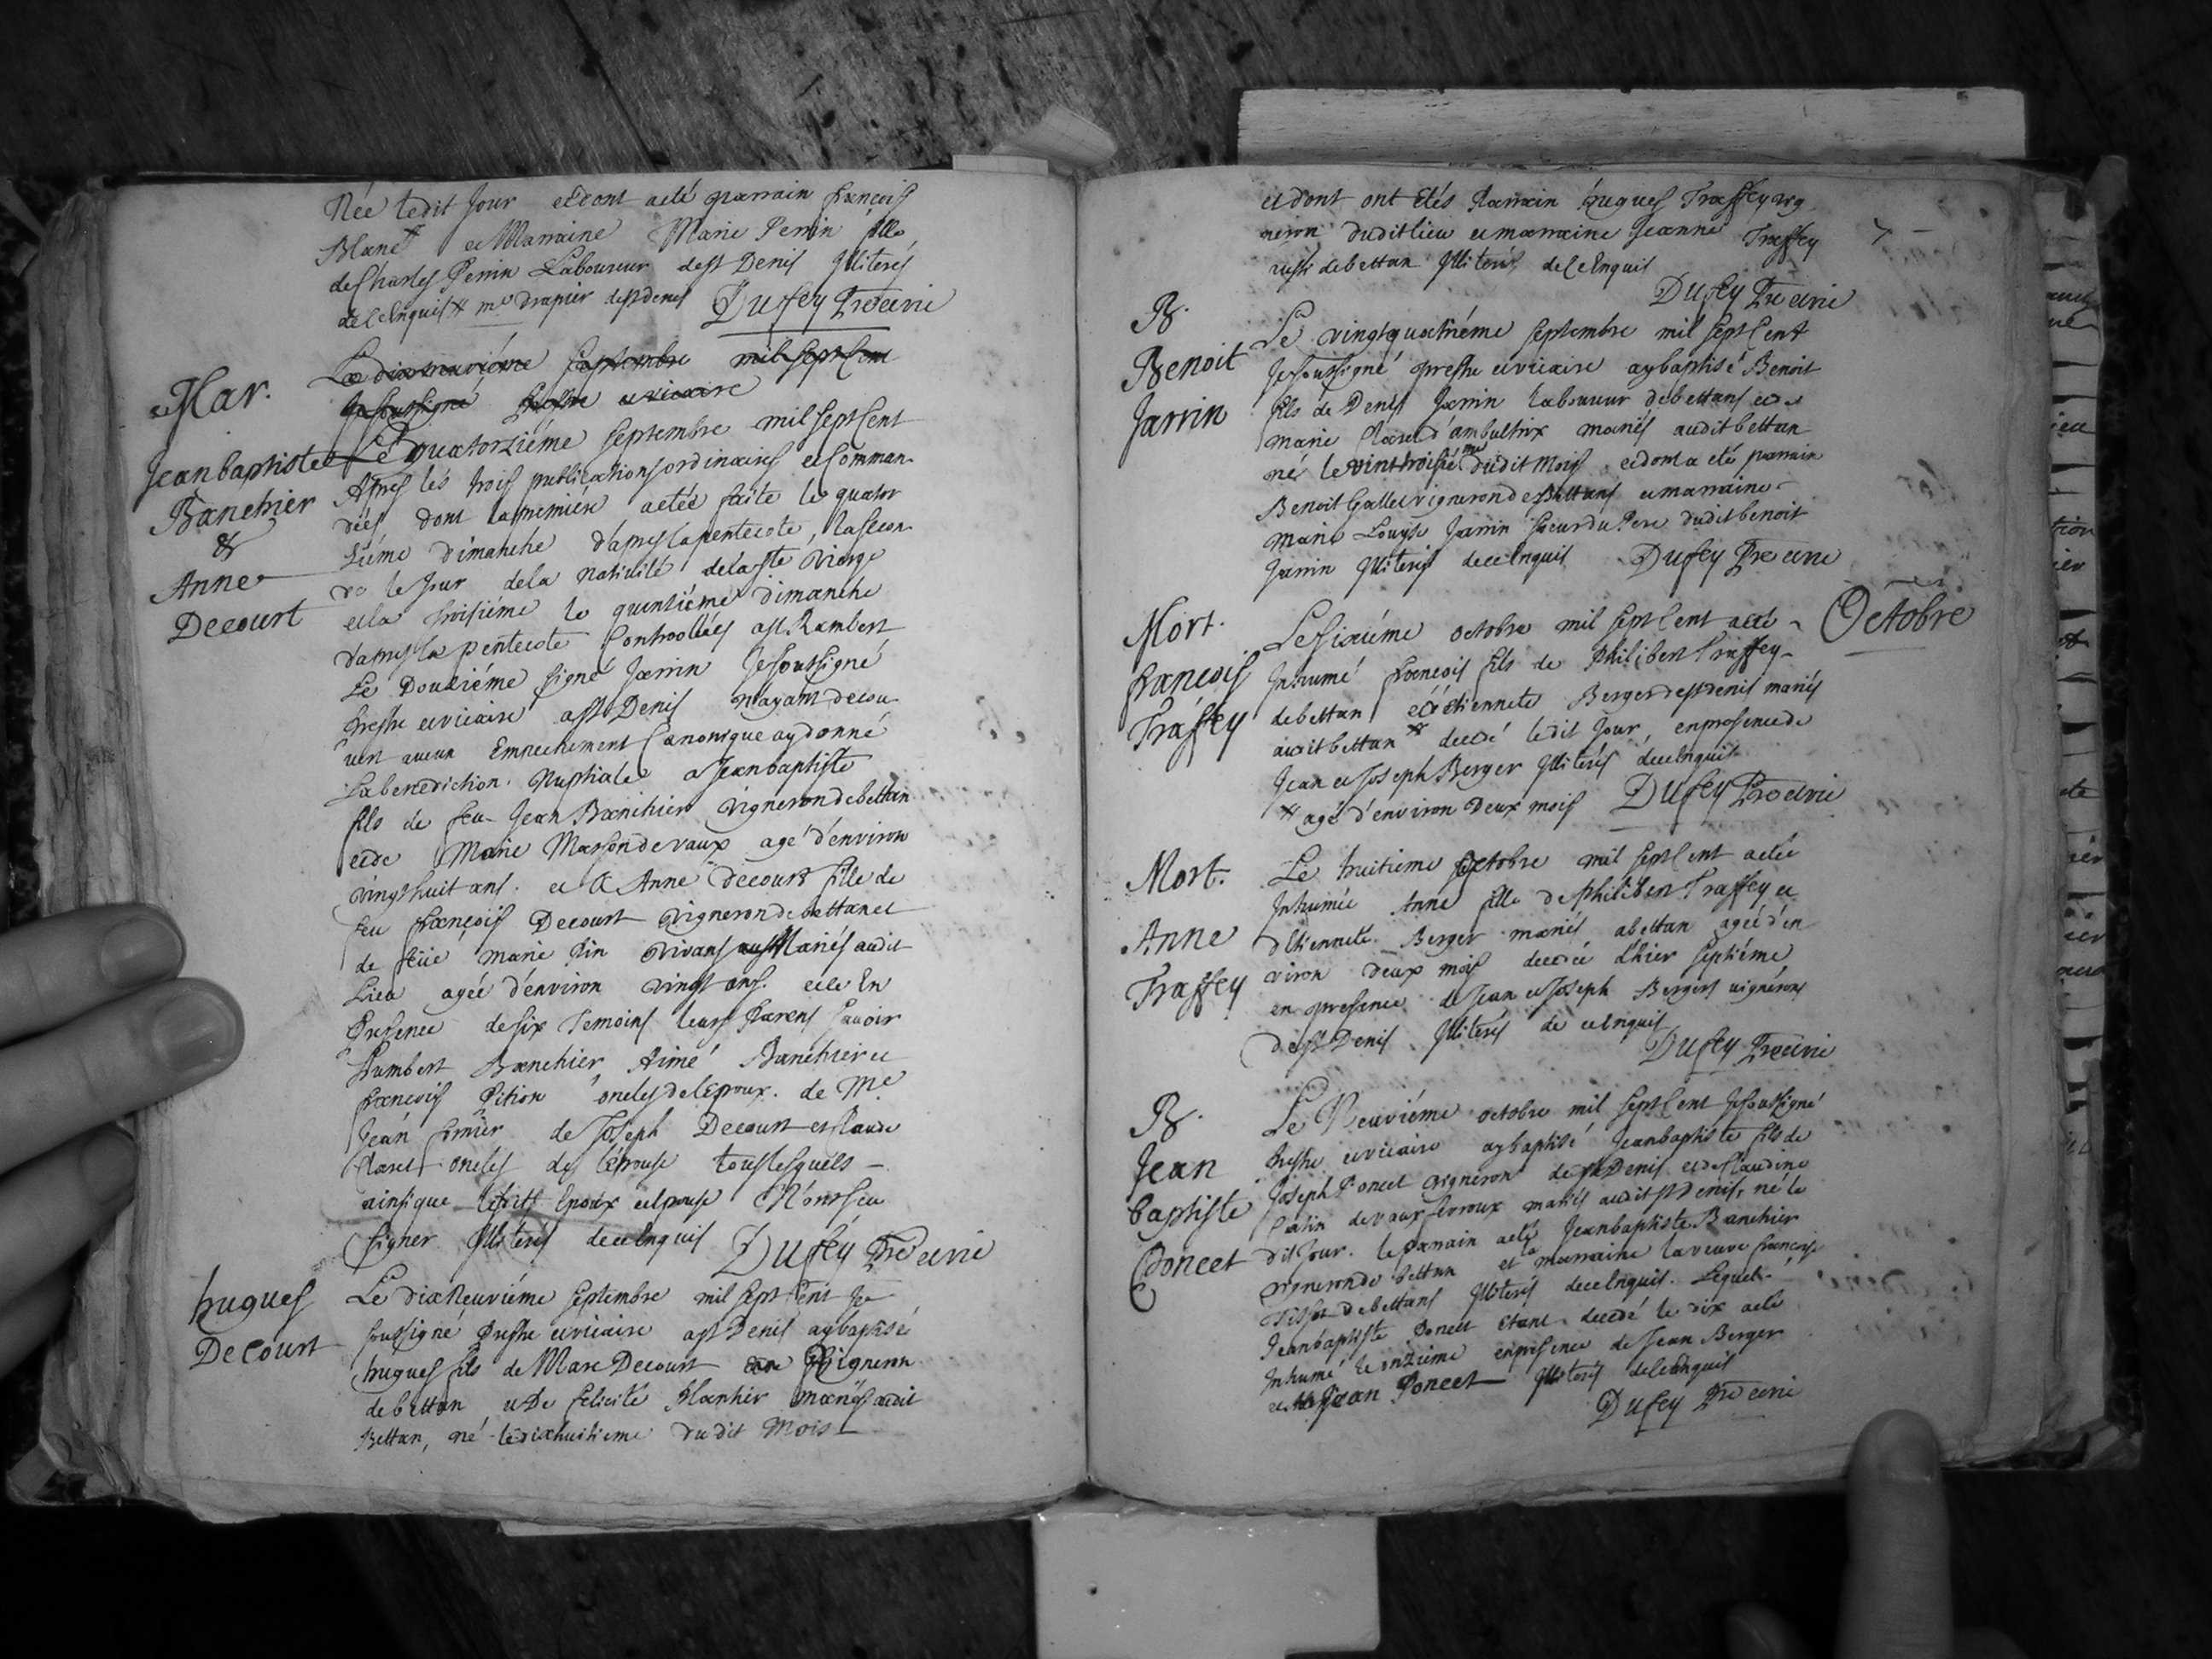 Née ledit Jour et dont a eté parrain francois
Blanc * et Marraine Marie Perrin fille
de Charles Perrin Laboureur de st Denis Illiterés
de ce Enquis * me drapier de st denis Dufey Pre et vic
Mar.
Le dixneuviéme septembre mil sept cent
Je soussigné Prestre et vicaire
Jean baptiste
Banchier
&
Anne
Decourt
Le quatorziéme septembre mil sept cent
Apres les trois publications ordinaires et Comman
dées dont la premiére a eté faite le quator
ziéme dimanche d'apres la pentecote, la secon
de le Jour de la Nativité de la ste Vierge
et la troisiéme le quinziéme dimanche
d'apres la pentecote Controollées a st Rambert
Le Douziéme signé Jarrin Je soussigné
Prestre et vicaire a st Denis n'ayant decou
vert aucun Empechement Canonique ay donné
La benediction Nuptiale a Jean baptiste
fils de feu Jean Banchier vigneron de bettan
et de Marie Masson de vaux agé d'environ
vingt huit ans. et a Anne Decourt fille de
feu francois Decourt vigneron de bettan et
de feüe marie Pin vivans Mariés audit
Lieu agée d'environ vingt ans. et ce En
Presence de six Temoins leurs Parens savoir
humbert Banchier Aimé Banchier et
francois Pition oncles de l'epoux. de Me
Jean de Joseph Decourt et Claude
Claret oncles de l'epouse tous lesquels
ainsi que lesdits Epoux et epouse N'ont sceu
signer Illiterés de ce Enquis Dufey Pre et vic
hugues
Decourt
Le dix Neuviéme septembre mil sept Cent Je
soussigné Prestre et vicaire a st Denis ay baptisé
hugues fils de Marc Decourt Vigneron
de bettan et De felicité mariés audit
Bettan, né le dixhuitieme dudit Mois
et dont ont Etés Parrain hugues Traffey vig
neron dudit lieu et marraine Jeanne Traffey
aussi de bettan Illiterés de ce Enquis
Dufey Pre et vic
7
B.
Benoit
Jarrin
Le vingt quatriéme septembre mil sept Cent
Je soussigné prestre et vicaire ay baptisé Benoit
fils de Denis Jarrin laboureur de bettans et de
marie Claret d'ambultrix mariés audit bettan
né le vint troisiéme dudit Mois et dont a eté parrain
Benoit Gallet vigneron de Bettans et marraine
Marie Louyse Jarrin soeur du Pere dudit benoit
Jarrin Illiterés de ce Enquis Dufey Pre et vic
Octobre
Mort.
francois
Traffey
Le sixiéme octobre mil sept Cent a eté
Inhumé francois fils de Philibert Traffey
de bettan et d'etiennete Berger de st denis mariés
audit bettan * decedé ledit Jour, en presence de
Jean et Joseph Berger Illiterés de ce Enquis
* agé d'environ Deux mois Dufey Pre et vic
Mort.
Anne
Traffey
Le huitieme octobre mil sept Cent a eté
Inhumée Anne fille de Philibert Traffey et
d'Etiennete Berger mariés a bettan agée d'en
viron deux mois decedée d'hier septiéme
en presence de Jean et Joseph Bergers vignerons
de st Denis Illiterés de ce Enquis
Dufey Pre et vic
B.
Jean
baptiste
Poncet
Le Neuviéme octobre mil sept Cent Je soussigné
Prestre et vicaire ay baptisé Jean baptiste fils de
Joseph Poncet vigneron de st Denis et de Claudine
de vaux mariés audit st Denis, né le
dit Jour. le parrain a eté Jean baptiste Banchier
vigneron de bettan et la marraine la veuve francoise
de bettans Illiterés de ce Enquis. Lequel
Jean baptiste Poncet Etant decedé le dix a eté
Inhumé le onzieme en presence de Jean Berger
et Jean Poncet Illiterés de ce Enquis
Dufey Pre et vic